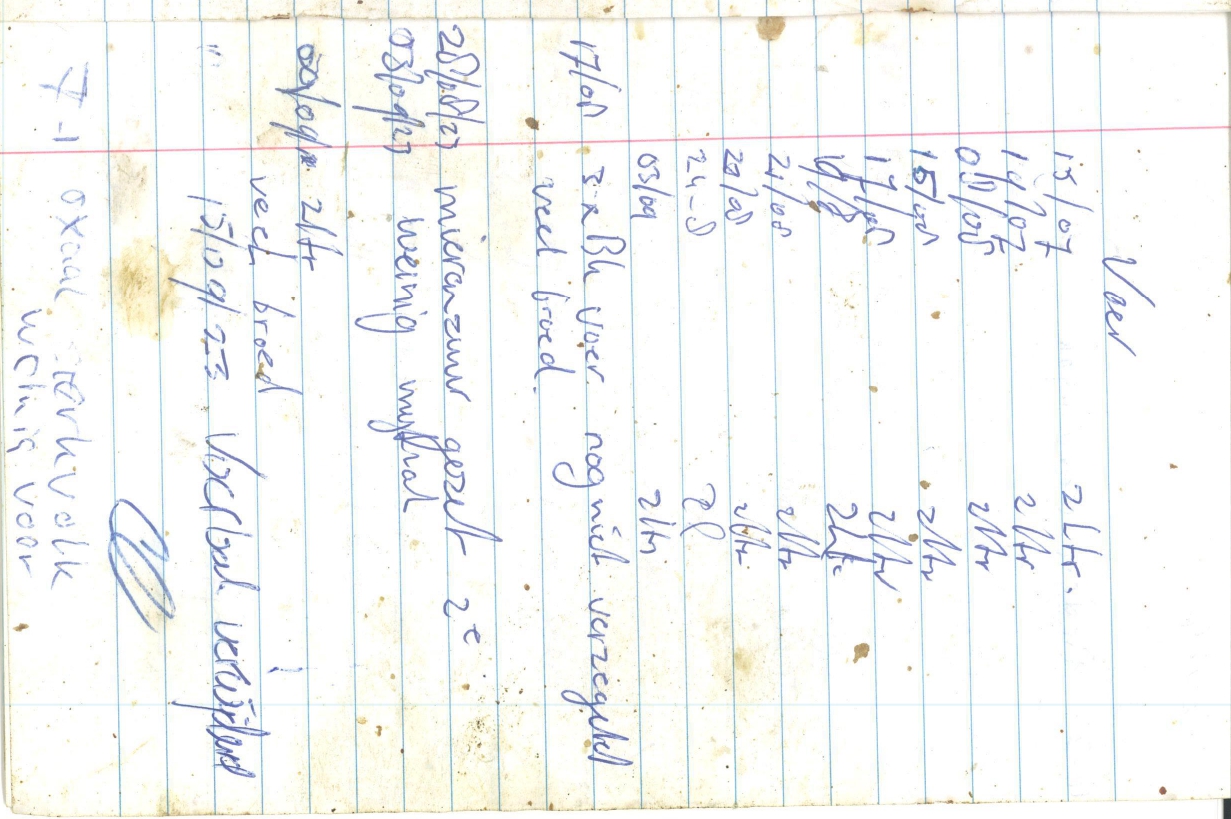 Voer
15/07 2 Ltr.
19/07 2 ltr
08/08 2 ltr
15/08 2 ltr
17/08 2 ltr
19/8 2 ltr
21/08 2 ltr
29/08 2 ltr.
24-8 2 l
03/09 2 ltr
17/08 3 x Bk voer nog niet verzegeld
veel broed.
28/08/23 mierenzuur gezet 2e
03/09/23 weinig mijtval
09/09/ 2 ltr
veel broed
" 15/09/23 Voerbak verwijderd
7-1 oxaal sterk volk
weinig voer